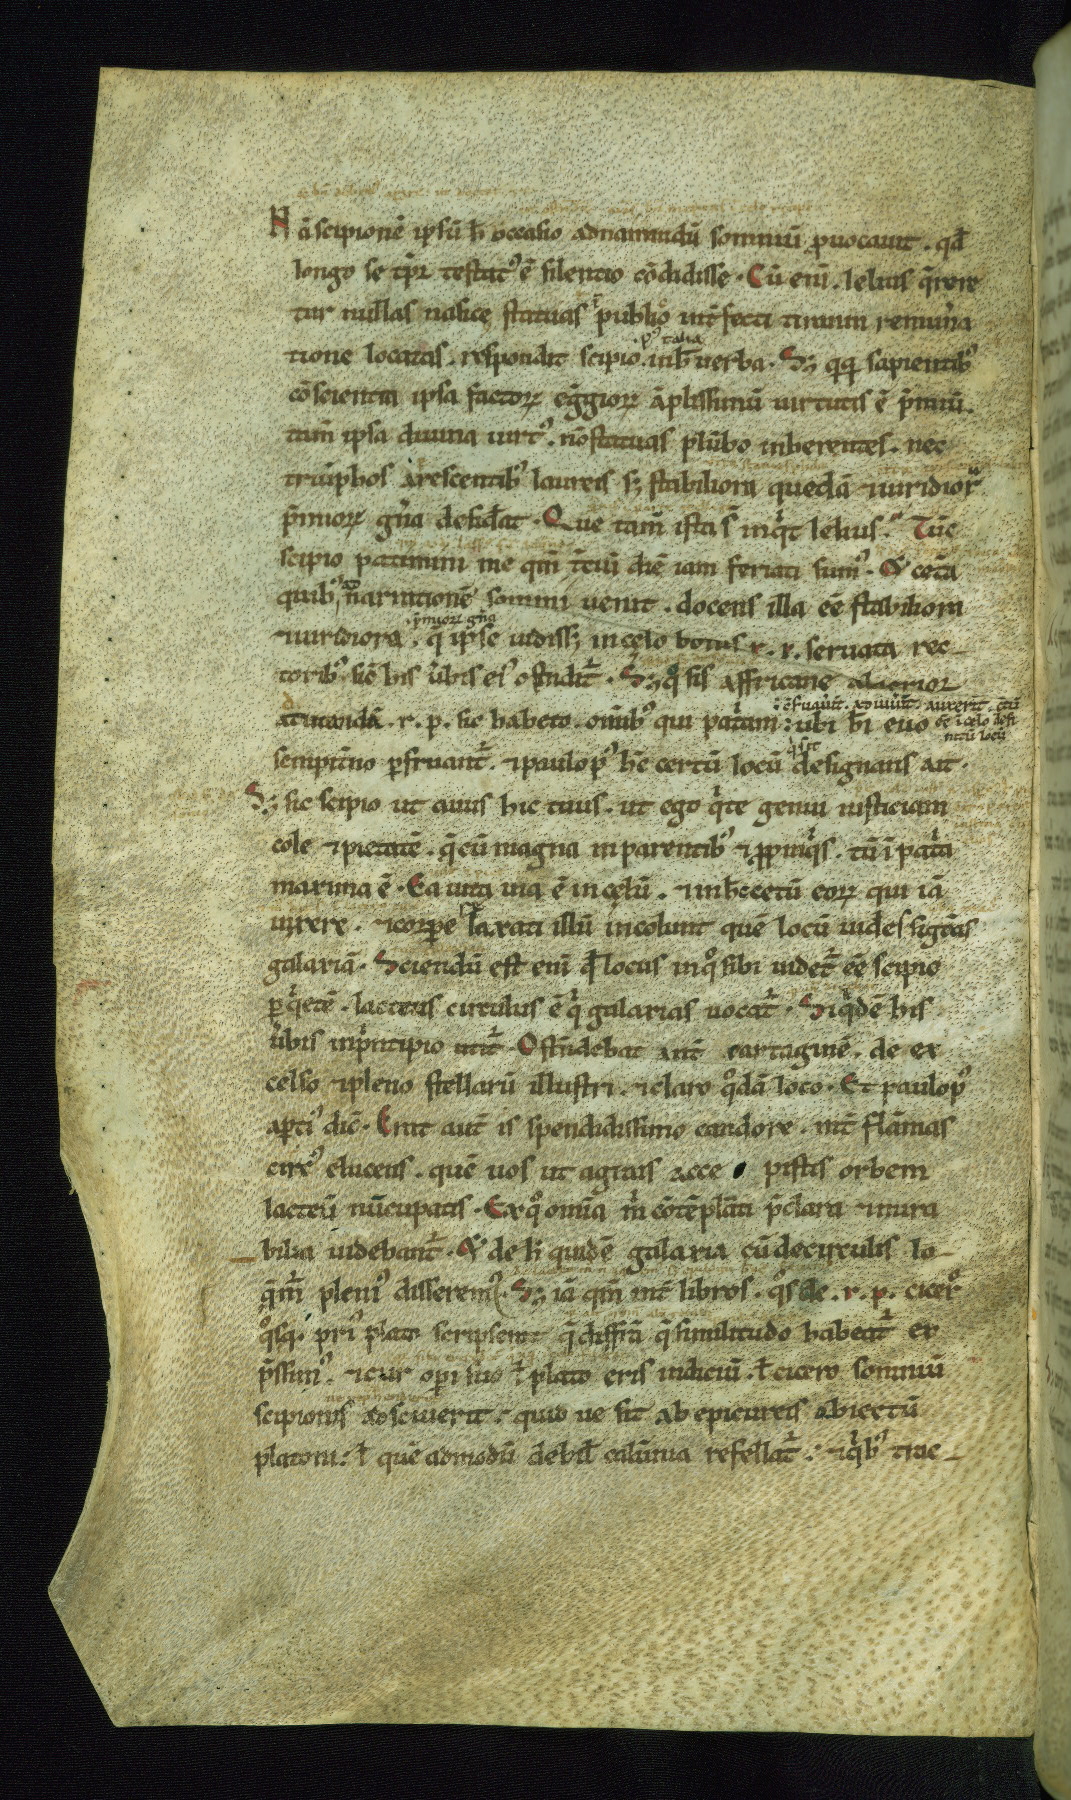 Nā scipionē ipsū h̄ occasio ad narrandū somniū ꝓuocauit . qđ
longo se tꝑr testat᷒ ē silentio cōdidisse . Cū eni̅ . lelius q̄rere
tur nullas nasice statuas ī publico int̄fecti tiranni remun̄a
tione locatas . respondit scipio . p᷒ talia . in h̄ uerba . Sꝫ qq̄ sapientib᷒
cōscientia ipsa factoꝝ eḡgioꝝ āplissimū uirtutis ē p̄miū .
tam̄ ipsa diuina uirt᷒ . nō statuas plūbo inherentes . nec
triūphos arescentib᷒ laureis sꝫ stabiliora quedā ⁊ uiridiora
p̄mioꝝ gn̄a desid̄at . Que tam̄ ista s̄ inqͥt lelius . Tūc
scipio patimini me qm̄ t̄cium diē iam feriati sum᷒ . ⁊ cet̄a
quib᷒ ad narrationē somni uenit . docens illa eē stabiliora
⁊ uiridiora . p̄mioꝝ gn̄a . q̄ ipse uidissꝫ in celo bonis r . p . seruata rec-
torib᷒ . sic̄ his ūbis ei᷒ ostndit᷑ . Sꝫ qͦ sis affricane alacrior
ad tutandā . r . p . sic habeto . omīb᷒ qui patͥam : c̄seruauīt . adiuuīt . auxerīt . c̄tū ēē ī celo defi nitū locū ubi b̄i euo
sempit̄no ꝑfruant᷑ . ⁊ paulo p᷒ h̄c certū locū qͥ sit designans ait .
Sꝫ sic scipio ut auus hic tuus . ut ego qͥ te genui iusticiam
cole ⁊ pietatē . q̄ cū magna in parentib᷒ ⁊ ꝓpinqͥs . tū ī patͥa
maxima ē . Ea uita uia ē in celū . ⁊ in h̄c cetū eoꝝ qui iā
uixere . ⁊ corpe laxati illū incolunt quē locū uides sig̅tās
galaxiā . Sciendū est eni̅ qđ locus in qͦ sibi uidet᷑ eē scipio
ꝑ qͥetē . lacteus circulus ē qͥ galaxias uocat᷑ . Siqͥdē his
ūbis in pͥncipio utit᷑ . Ostn̄debat aut̄ cartaginē . de ex
celso ⁊ pleno stellarū illustri . ⁊ claro qͦdā loco . Et paulo p᷒
aꝑti᷒ dic̄ . Erat aut̄ is spendidissimo candore . int̄ flāmas
circ᷒ elucens . quē uos ut a grais acce pistis orbem
lacteū nūcupatis . Ex qͦ omīa m̄ cōtēplāti p̄clara ⁊ mira
bilia uidebant᷑ . ⁊ de h̄ quidē galaxia cū de circulis lo-
qm̄r pleni᷒ disserem᷒ . Sꝫ iā qm̄ int̄ libros . qͦs de . r . p . cicero
qͦsq̄ . pri᷒ plato scripserat q̄ diffr̄a q̄ similitudo habeat᷑ ex
p̄ssim᷒ . ⁊ cur oꝑi suo ł plato eris indiciū . ł cicero somniū
scipionis adsciuerit . quid ue sit ab epicureis obiectū
platoni : ł quē admodū debił calūnia refellat᷑ . ⁊ qͥb᷒ trac-